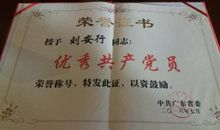 荣誉证书
授予 刘安行 同志：
优秀共产党员
荣誉称号，特发此证，以资鼓励。
中共广东省委
二〇一六年七月